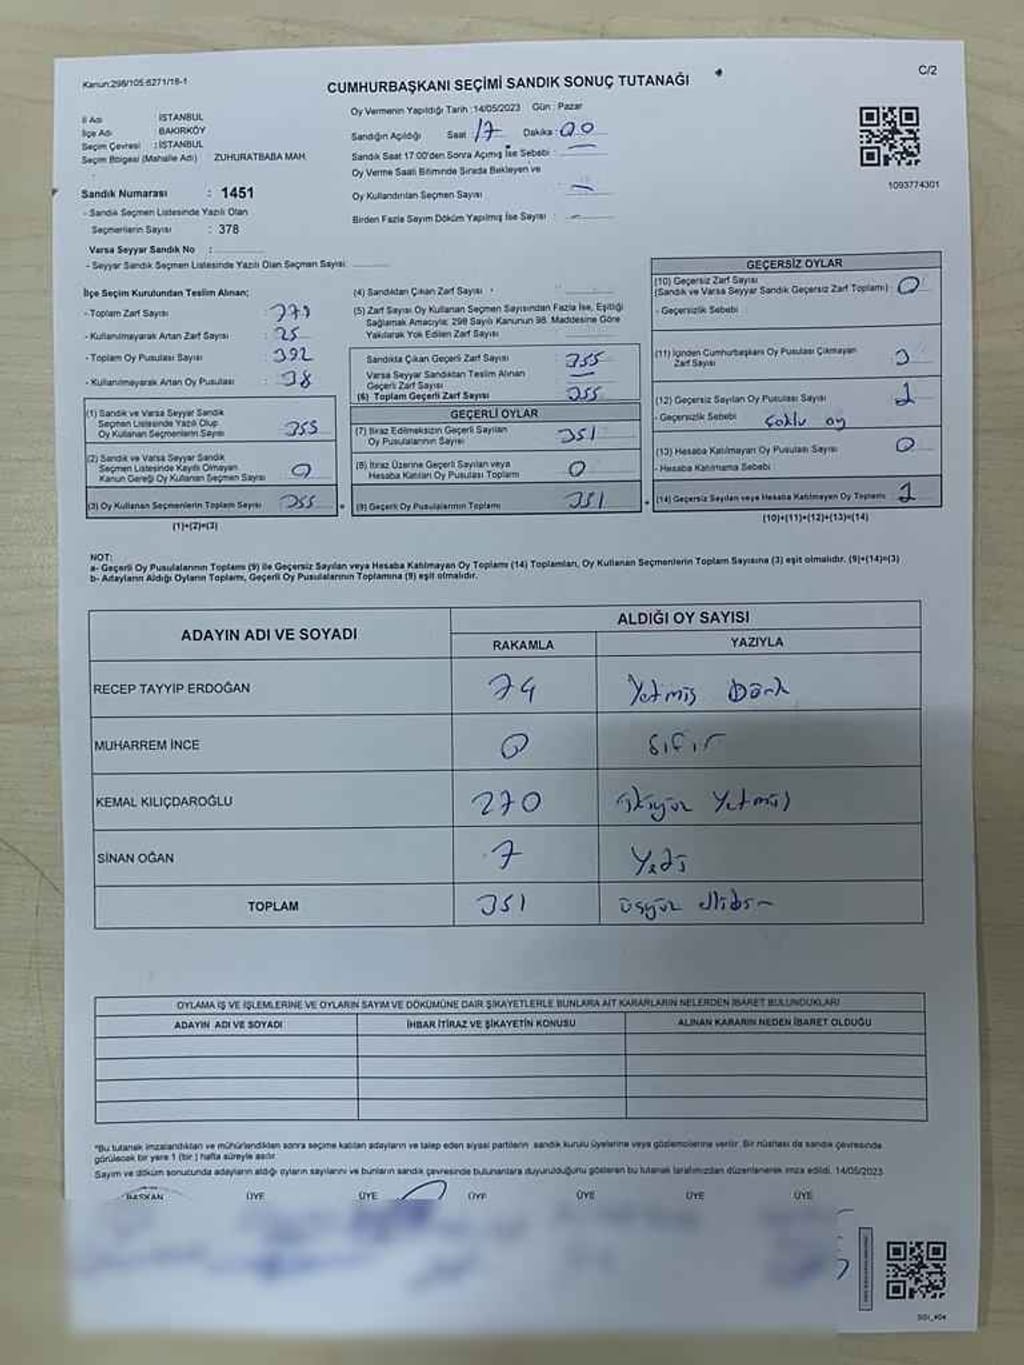 Kanun:298/105-6271/18-1
C/2
CUMHURBAŞKANI SEÇİMİ SANDIK SONUÇ TUTANAĞI
İl Adı İSTANBUL
İlçe Adı BAKIRKÖY
Seçim Çevresi : İSTANBUL
Seçim Bölgesi (Mahalle Adı) ZUHURATBABA MAH.
Oy Vermenin Yapıldığı Tarih : 14/05/2023 Gün : Pazar
Sandığın Açıldığı Saat 17 Dakika : 00
Sandık Saat 17:00'den Sonra Açmış İse Sebebi :
Oy Verme Saati Bitiminde Sırada Bekleyen ve
Oy Kullandırılan Seçmen Sayısı
Birden Fazla Sayım Döküm Yapılmış İse Sayısı :
1093774301
Sandık Numarası : 1451
- Sandık Seçmen Listesinde Yazılı Olan
Seçmenlerin Sayısı : 378
Varsa Seyyar Sandık No :
- Seyyar Sandık Seçmen Listesinde Yazılı Olan Seçmen Sayısı:
İlçe Seçim Kurulundan Teslim Alınan;
- Toplam Zarf Sayısı :
- Kullanılmayarak Artan Zarf Sayısı : 25
- Toplam Oy Pusulası Sayısı : 392
- Kullanılmayarak Artan Oy Pusulası : 38
(1) Sandık ve Varsa Seyyar Sandık
Seçmen Listesinde Yazılı Olup
Oy Kullanan Seçmenlerin Sayısı 355
(2) Sandık ve Varsa Seyyar Sandık
Seçmen Listesinde Kayıtlı Olmayan
Kanun Gereği Oy Kullanan Seçmen Sayısı 0
(3) Oy Kullanan Seçmenlerin Toplam Sayısı 355
(1)+(2)=(3)
(4) Sandıktan Çıkan Zarf Sayısı
(5) Zarf Sayısı Oy Kullanan Seçmen Sayısından Fazla İse, Eşitliği
Sağlamak Amacıyla; 298 Sayılı Kanunun 98. Maddesine Göre
Yakılarak Yok Edilen Zarf Sayısı
Sandıkta Çıkan Geçerli Zarf Sayısı 355
Varsa Seyyar Sandıktan Teslim Alınan
Geçerli Zarf Sayısı
(6) Toplam Geçerli Zarf Sayısı 355
GEÇERLİ OYLAR
(7) İtiraz Edilmeksizin Geçerli Sayılan
Oy Pusulalarının Sayısı 351
(8) İtiraz Üzerine Geçerli Sayılan veya
Hesaba Katılan Oy Pusulası Toplamı 0
(9) Geçerli Oy Pusulalarının Toplamı 351
GEÇERSİZ OYLAR
(10) Geçersiz Zarf Sayısı
(Sandık ve Varsa Seyyar Sandık Geçersiz Zarf Toplamı) : 0
- Geçersizlik Sebebi :
(11) İçinden Cumhurbaşkanı Oy Pusulası Çıkmayan
Zarf Sayısı
(12) Geçersiz Sayılan Oy Pusulası Sayısı
- Geçersizlik Sebebi Çoklu oy
(13) Hesaba Katılmayan Oy Pusulası Sayısı 0
- Hesaba Katılmama Sebebi :
(14) Geçersiz Sayılan veya Hesaba Katılmayan Oy Toplamı
(10)+(11)+(12)+(13)=(14)
NOT:
a- Geçerli Oy Pusulalarının Toplamı (9) ile Geçersiz Sayılan veya Hesaba Katılmayan Oy Toplamı (14) Toplamları, Oy Kullanan Seçmenlerin Toplam Sayısına (3) eşit olmalıdır. (9)+(14)=(3)
b- Adayların Aldığı Oyların Toplamı, Geçerli Oy Pusulalarının Toplamına (9) eşit olmalıdır.
ADAYIN ADI VE SOYADI
ALDIĞI OY SAYISI
RAKAMLA YAZIYLA
RECEP TAYYİP ERDOĞAN 74 Yetmiş Dört
MUHARREM İNCE 0 Sıfır
KEMAL KILIÇDAROĞLU 270 ikiyüz Yetmiş
SİNAN OĞAN 7 Yedi
TOPLAM 351 üçyüz ellibir
OYLAMA İŞ VE İŞLEMLERİNE VE OYLARIN SAYIM VE DÖKÜMÜNE DAİR ŞİKAYETLERLE BUNLARA AİT KARARLARIN NELERDEN İBARET BULUNDUKLARI
ADAYIN ADI VE SOYADI İHBAR İTİRAZ VE ŞİKAYETİN KONUSU ALINAN KARARIN NEDEN İBARET OLDUĞU
*Bu tutanak imzalandıktan ve mühürlendikten sonra seçime katılan adayların ve talep eden siyasi partilerin sandık kurulu üyelerine veya gözlemcilerine verilir. Bir nüshası da sandık çevresinde
görülecek bir yere 1 (bir) hafta süreyle asılır.
Sayım ve döküm sonucunda adayların aldığı oyların sayılarını ve bunların sandık çevresinde bulunanlara duyurulduğunu gösteren bu tutanak tarafımızdan düzenlenerek imza edildi. 14/05/2023
BAŞKAN ÜYE ÜYE ÜYE ÜYE ÜYE ÜYE